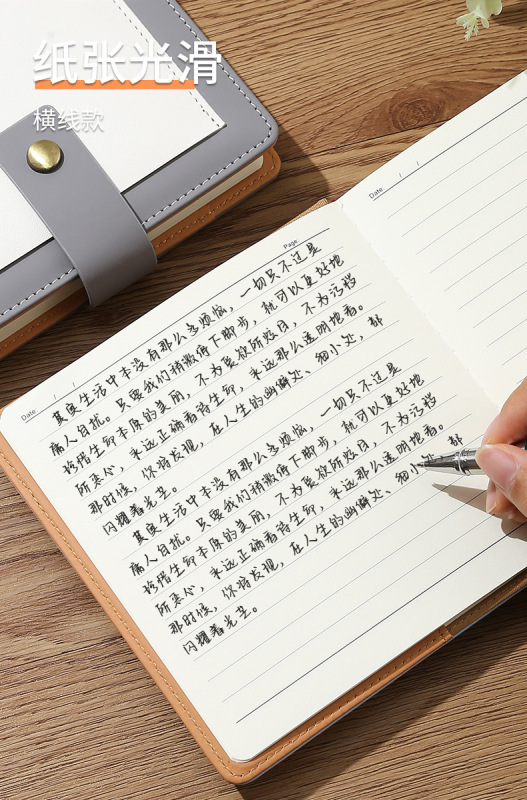 纸张光滑
横线款
Date / /
Page
Date / /
其实生活中本没有那么多烦恼，一切只不过是
庸人自扰。只要我们稍微停下脚步，就可以更好地
珍惜生命本原的美丽，不为贪欲所炫目，不为污秽
所恶心，永远正确看待生命，永远那么透明地看。
那时候，你将发现，在人生的幽僻处、细小处，都
闪耀着光芒。
其实生活中本没有那么多烦恼，一切只不过是
庸人自扰。只要我们稍微停下脚步，就可以更好地
珍惜生命本原的美丽，不为贪欲所炫目，不为污秽
所恶心，永远正确看待生命，永远那么透明地看。
那时候，你将发现，在人生的幽僻处、细小处，都
闪耀着光芒。